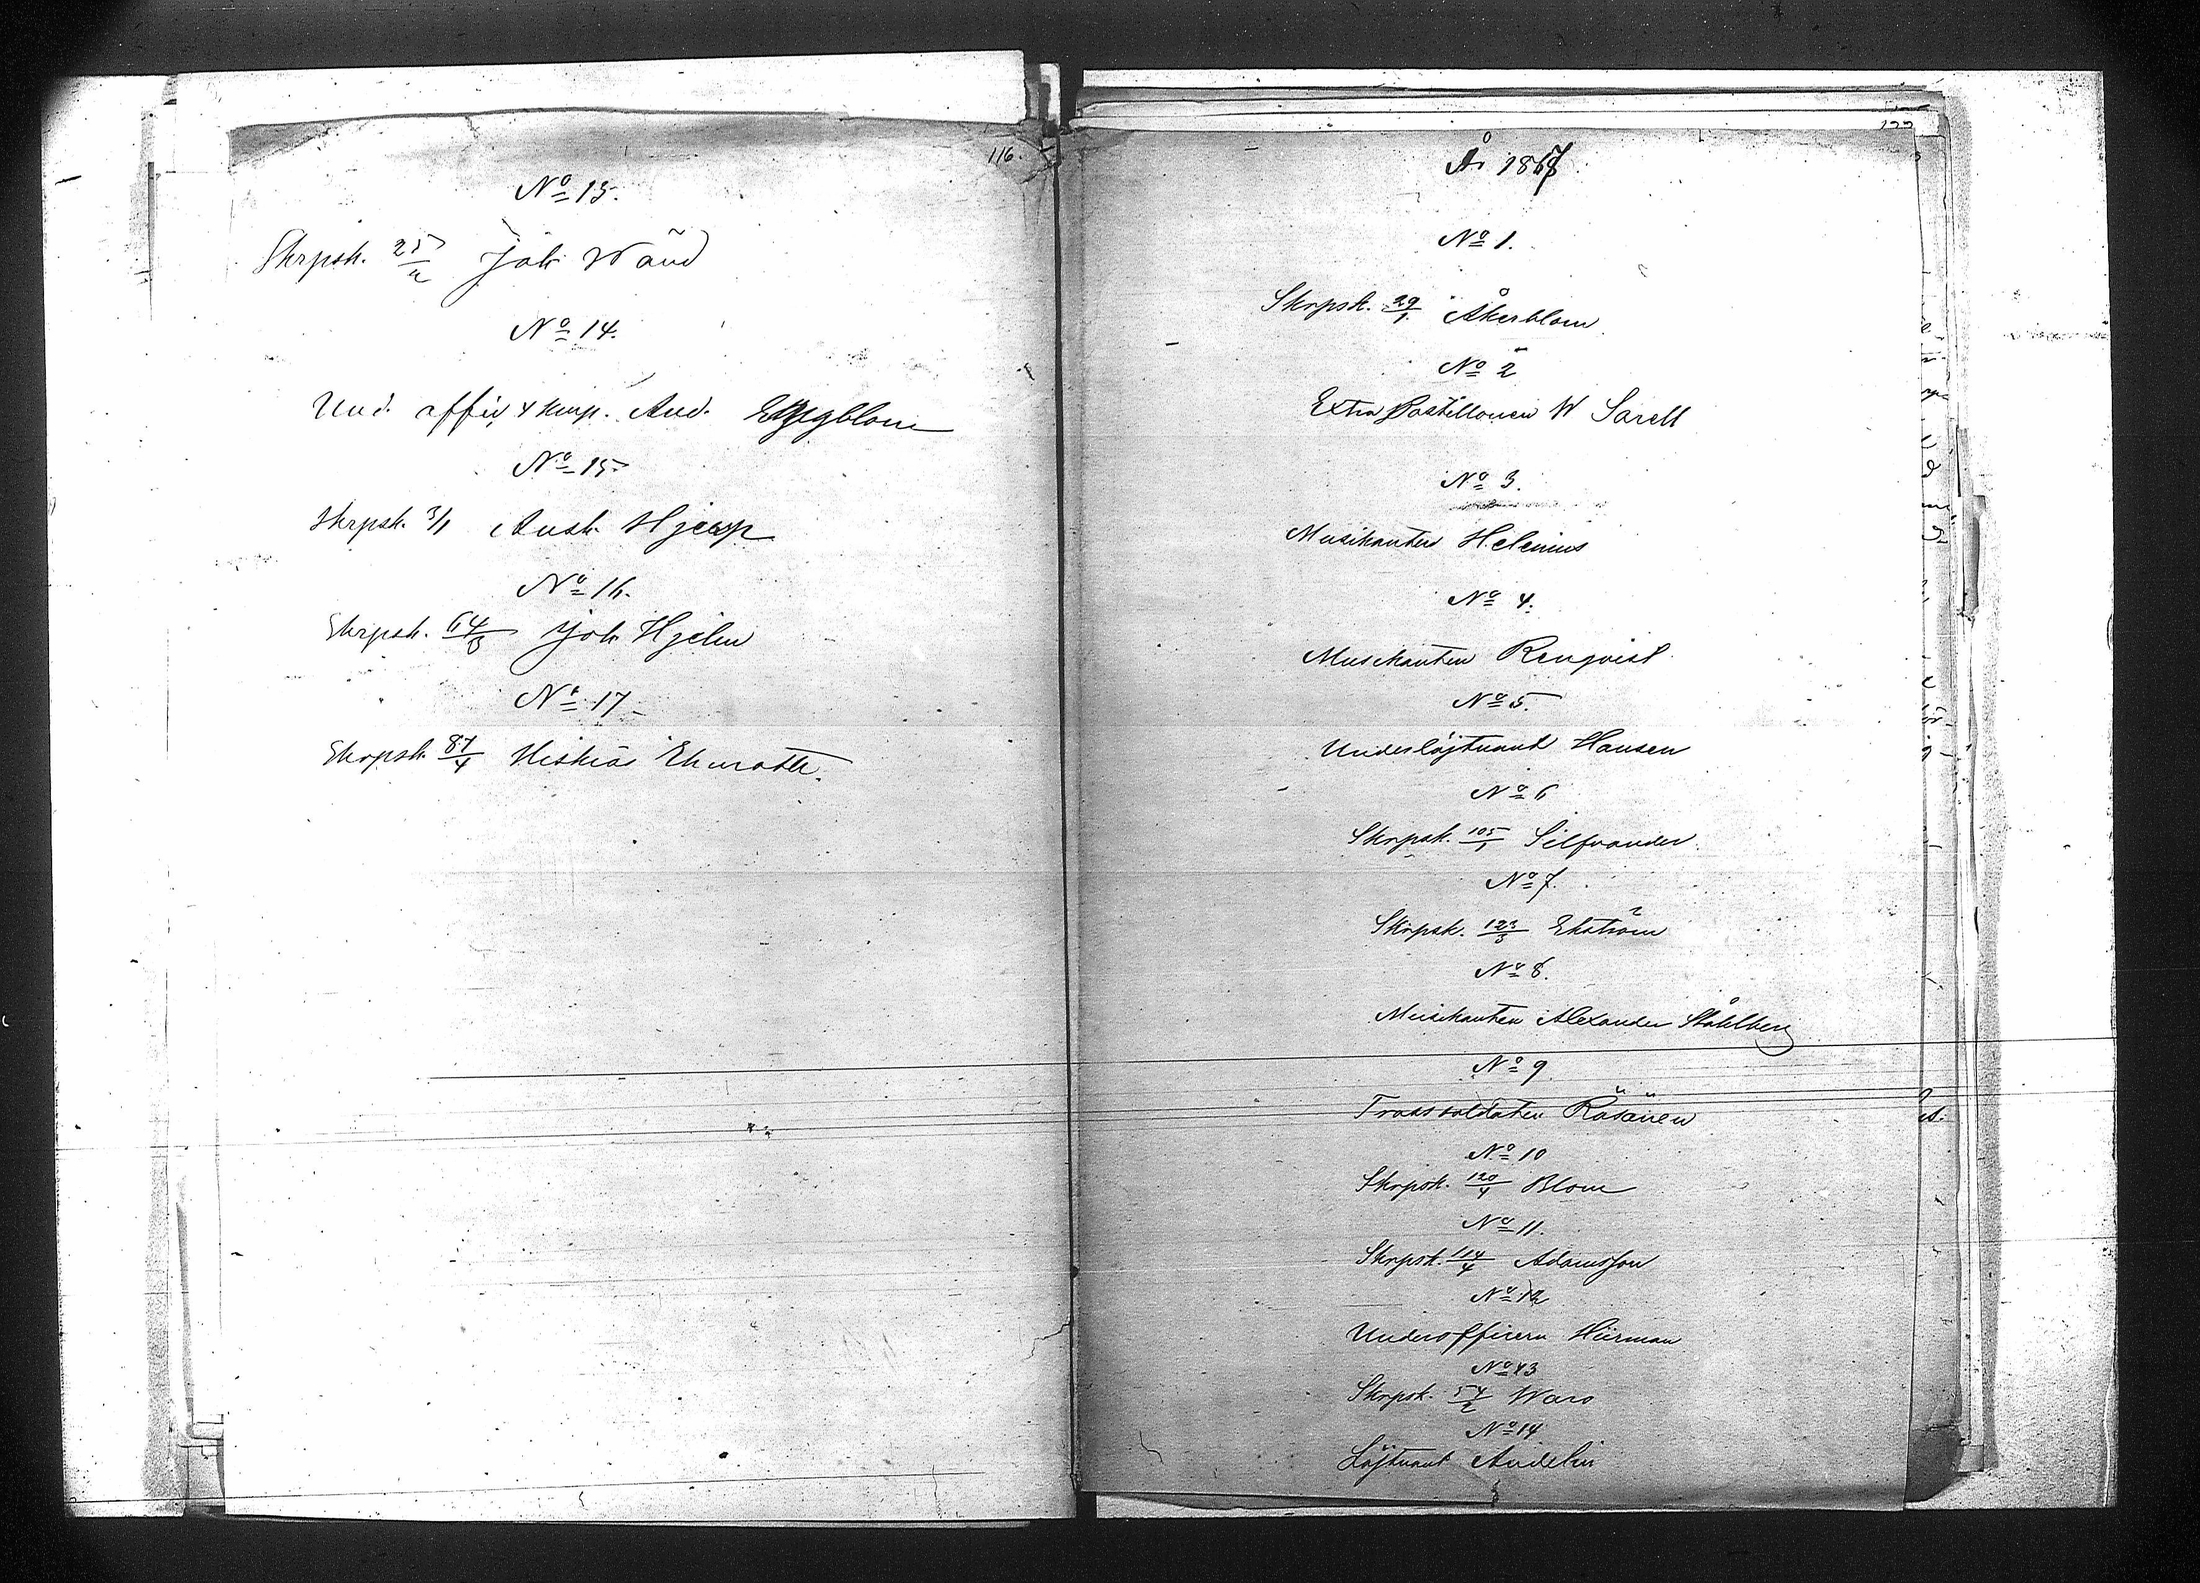 116.
No 13.
Skrpsk. 25/ Joh Wänd
No 14.
Und. offic 4 Komp. And.
No 15
Skrpsk. 3/1 Aust. Hjelp
No 16.
Skrpsk. 64/3 Joh Hjelm
No 17
Skrpsk. 87/4 Hiskias
År 1867
No 1.
Skrpsk. 29/1. Åkerblom
No 2
Extra Postillonen W Sarell
No 3.
Musikanten Helenius
No 4.
Musikanten Renqvist
No 5.
Underlöjtnand Hansen
No 6
Skrpsk. 105/1 Silfvander.
No 7.
Skrpsk. 123/3 Ekström
No 8.
Musikanten Alexander Ståhlberg
No 9
Trossoldaten Räsänen
No 10
Skrpsk. 120/4 Blom
No 11.
Skrpsk. 114/4 Adamsson
No 12
Underofficern Hürman
No 13
Skrpsk. 54/2 Waro
No 14
Löjtnant Andelin